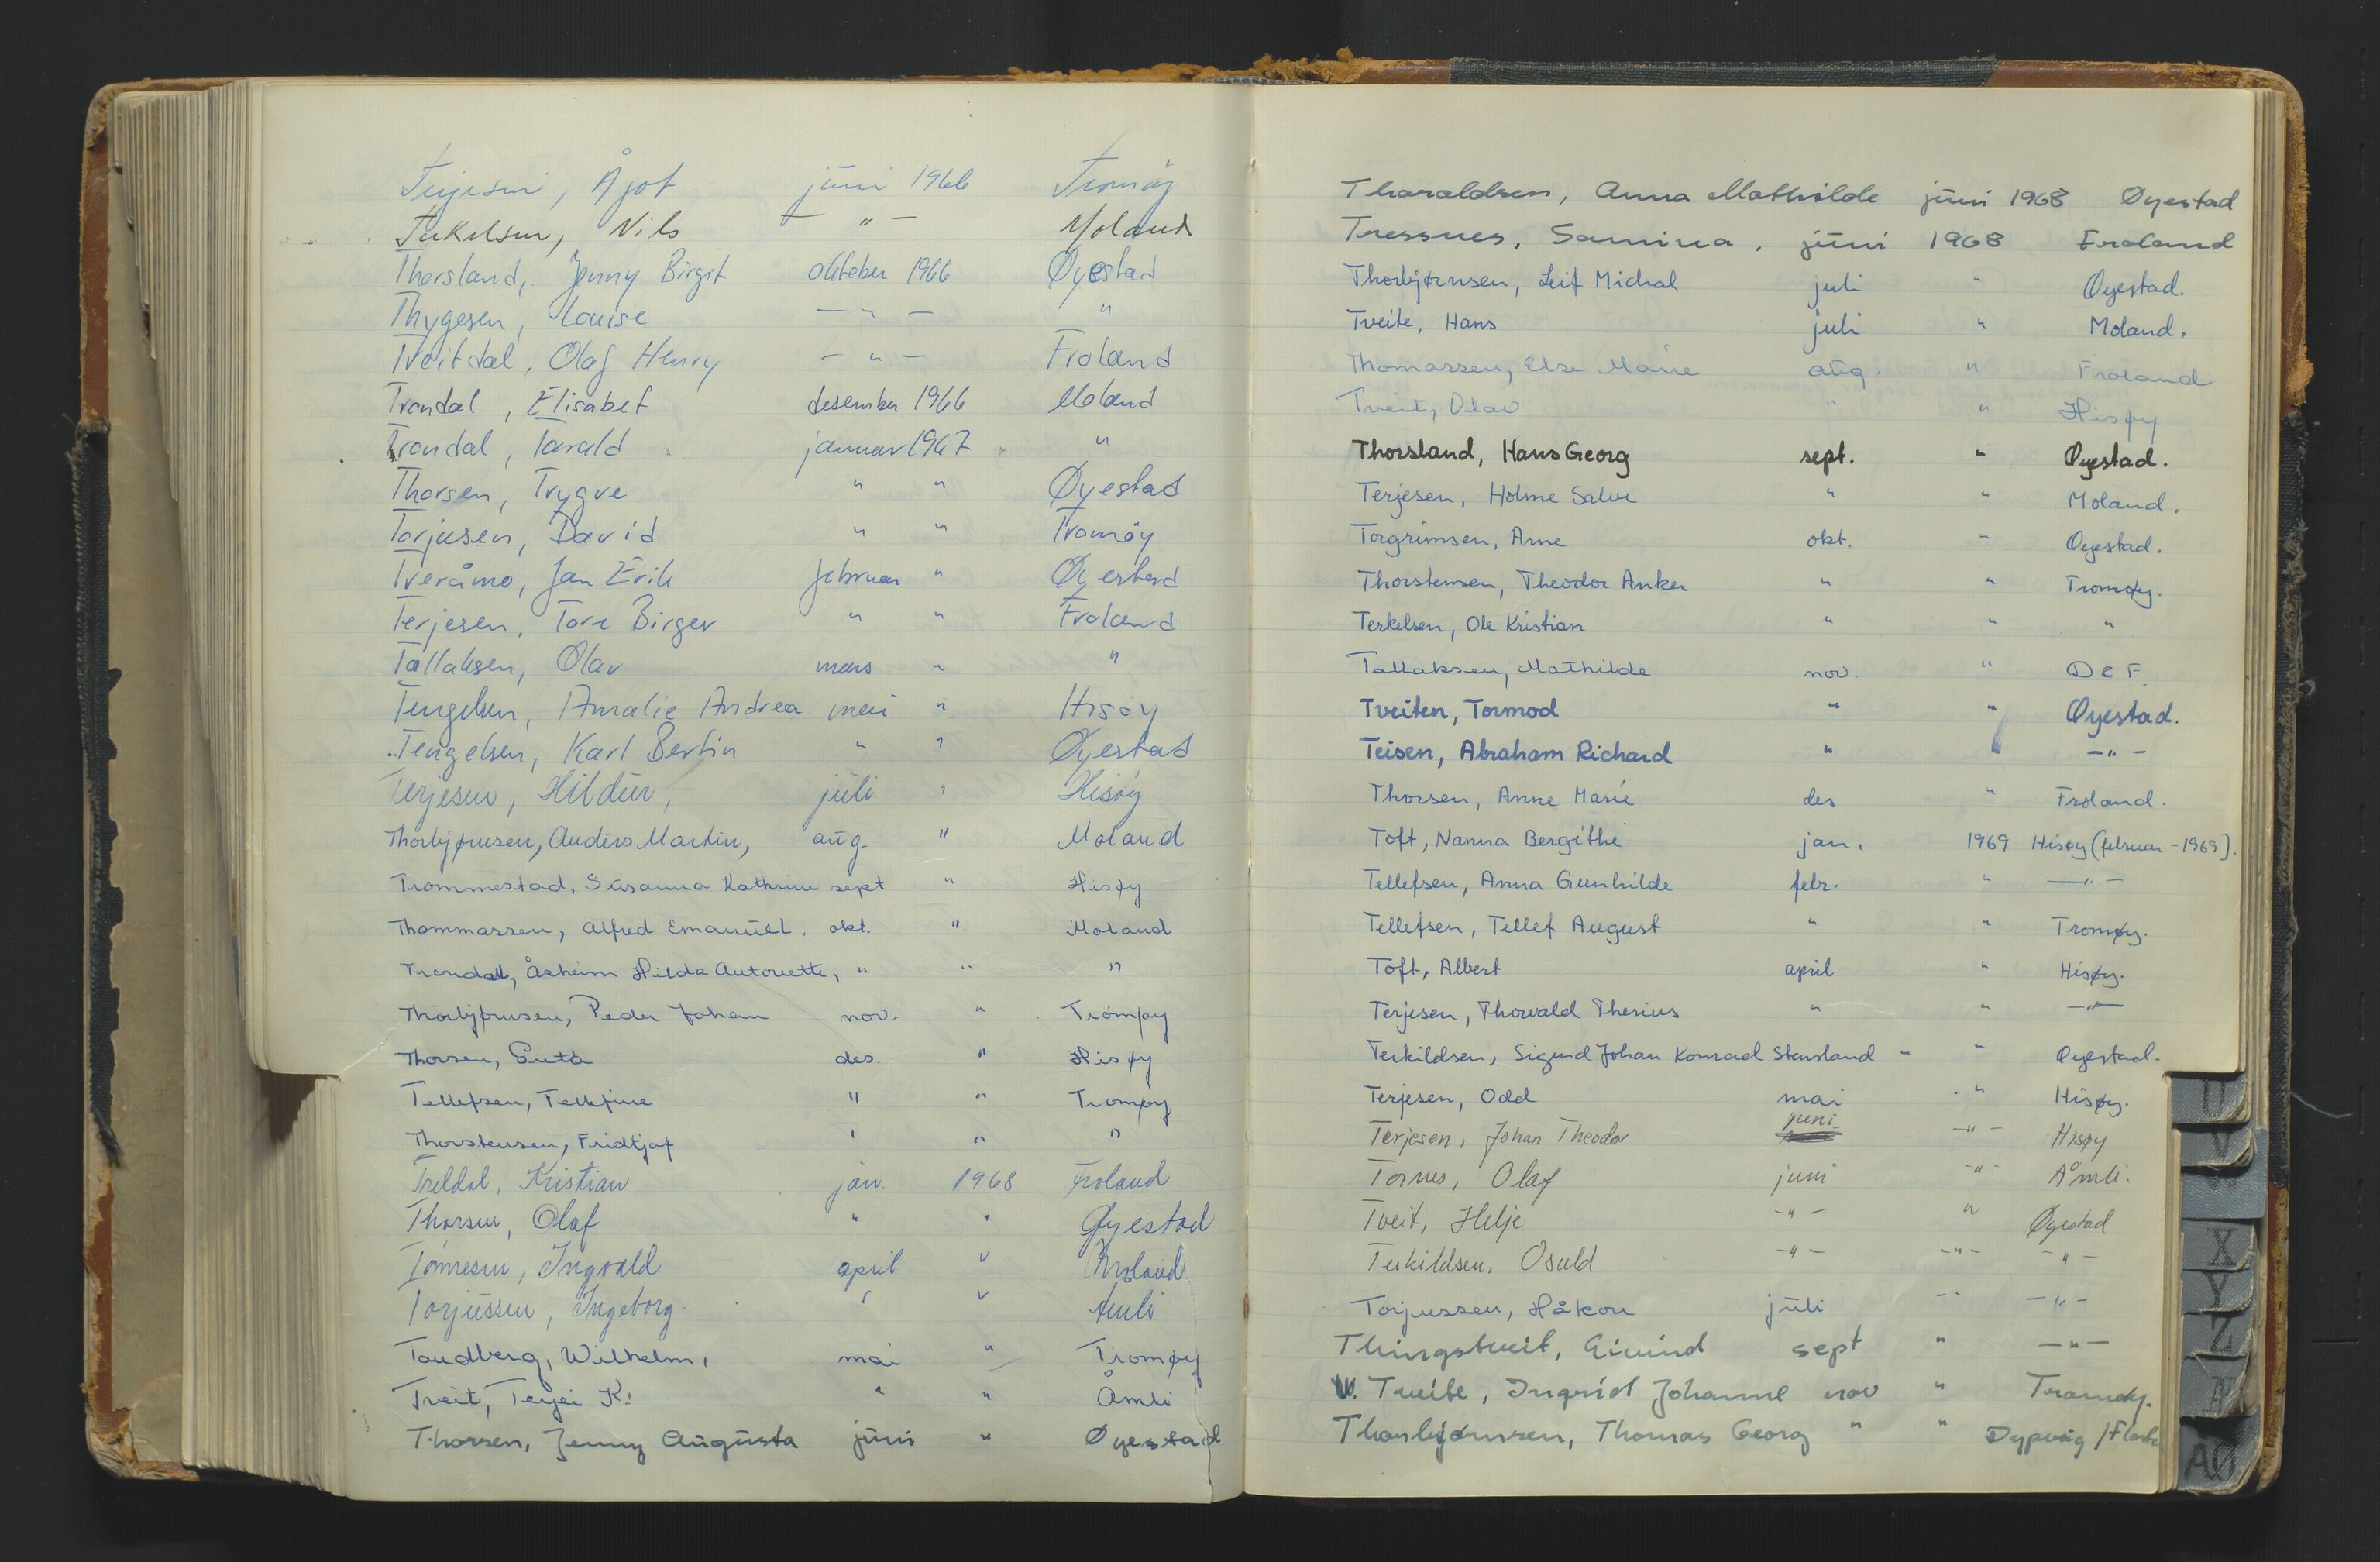 Terjesen, Ågot juni 1966 Tromøy
Terkelsen, Nils — " — Moland
Thorsland, Jenny Birgit oktober 1966 Øyestad
Thygesen, Louise — " — "
Tveitdal, Olaf Henry — " — Froland
Trondal, Elisabet desember 1966 Moland
Trondal, Tarald januar 1967 "
Thorsen, Trygve " " Øyestad
Torjusen, David " " Tromøy
Tveråmo, Jan Erik februar " Øyestad
Terjesen, Tore Birger " " Froland
Tallaksen, Olav mars " "
Tengelsen, Amalie Andrea mai " Hisøy
Tengelsen, Karl Bertin " " Øyestad
Terjesen, Hildur, juli " Hisøy
Thorbjørnsen, Anders Martin, aug. " Moland
Trommestad, Susanna Kathrine sept " Hisøy
Thommassen, Alfred Emanuel. okt. " Moland
Trondal, Åsheim Hilda Antonette, " " "
Thorbjørnsen, Peder Johan nov. " Tromøy
Thorsen, Greta des. " Hisøy
Tellefsen, Tellefine " " Tromøy
Thorstensen, Fridtjof " " "
Treldal, Kristian jan. 1968 Froland
Thorsen, Olaf " " Øyestad
Tønnesen, Ingvald april " Moland
Torjussen, Ingeborg. " " Amli
Tandberg, Wilhelm, mai " Tromøy
Tveit, Terjei K. " " Åmli
Thorsen, Jenny Augusta juni " Øyestad
Tharaldsen, Anna Mathilde juni 1968 Øyestad
Tressnes, Samina. juni 1968 Froland
Thorbjørnsen, Leif Michal juli " Øyestad.
Tveite, Hans juli " Moland.
Thomassen, Else Marie aug. " Froland
Tveit, Olav " " Hisøy
Thorsland, Hans Georg sept. " Øyestad.
Terjesen, Holme Salve " " Moland.
Torgrimsen, Arne okt. " Øyestad.
Thorstensen, Theodor Anker " " Tromøy.
Terkelsen, Ole Kristian " " "
Tallaksen, Mathilde nov. " D E F.
Tveiten, Tormod " " Øyestad.
Teisen, Abraham Richard " " — " —
Thorsen, Anne Marie des " Froland.
Toft, Nanna Bergithe jan. 1969 Hisøy (februar - 1969).
Tellefsen, Anna Gunhilde febr. " — " —
Tellefsen, Tellef August " " Tromøy.
Toft, Albert april " Hisøy.
Terjesen, Thorvald Therius " " — " —
Terkildsen, Sigurd Johan Konrad Stensland " " Øyestad.
Terjesen, Odd mai " Hisøy.
Terjesen, Johan Theodor juni — " — Hisøy
Tornes, Olaf juni — " — Åmli.
Tveit, Helje — " — " Øyestad
Terkildsen, Osuld — " — — " — — " —
Torjussen, Håkon juli — " — — " —
Thingstveit, Eivind sept " — " —
Tveite, Ingrid Johanne nov " Tromøy.
Thorbjørnsen, Thomas Georg " " Dypvåg /
U
V
X
Y
Z
Æ
AØ